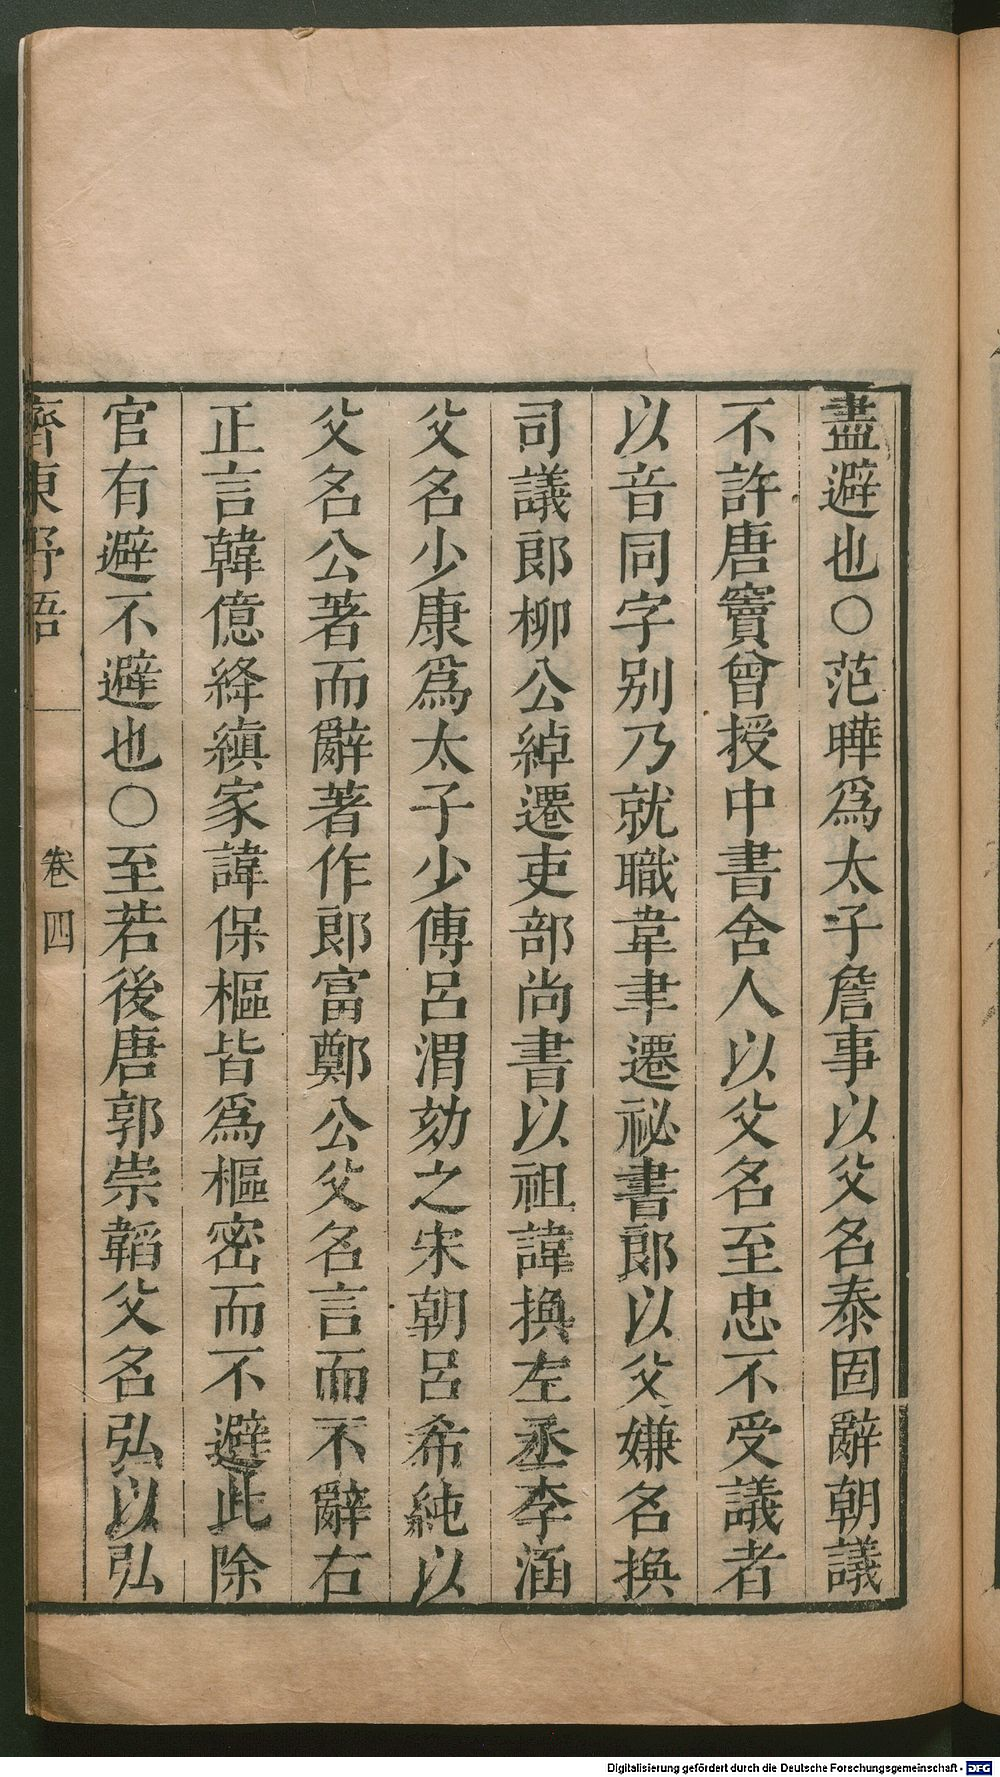 盡避也○范曄爲太子詹事以父名泰固辭朝議
不許唐竇曾授中書舍人以父名至忠不受議者
以音同字别乃就職韋聿遷祕書郎以父嫌名換
司議郎柳公綽遷吏部尚書以祖諱換左丞李涵
父名少康爲太子少傅呂渭劾之宋朝呂希純以
父名公著而辭著作郎富鄭公父名言而不辭右
正言韓億絳縝家諱保樞皆爲樞密而不避此除
官有避不避也○至若後唐郭崇韜父名弘以弘
齊東野語
卷四
Digitalisierung gefördert durch die Deutsche Forschungsgemeinschaft - DFG